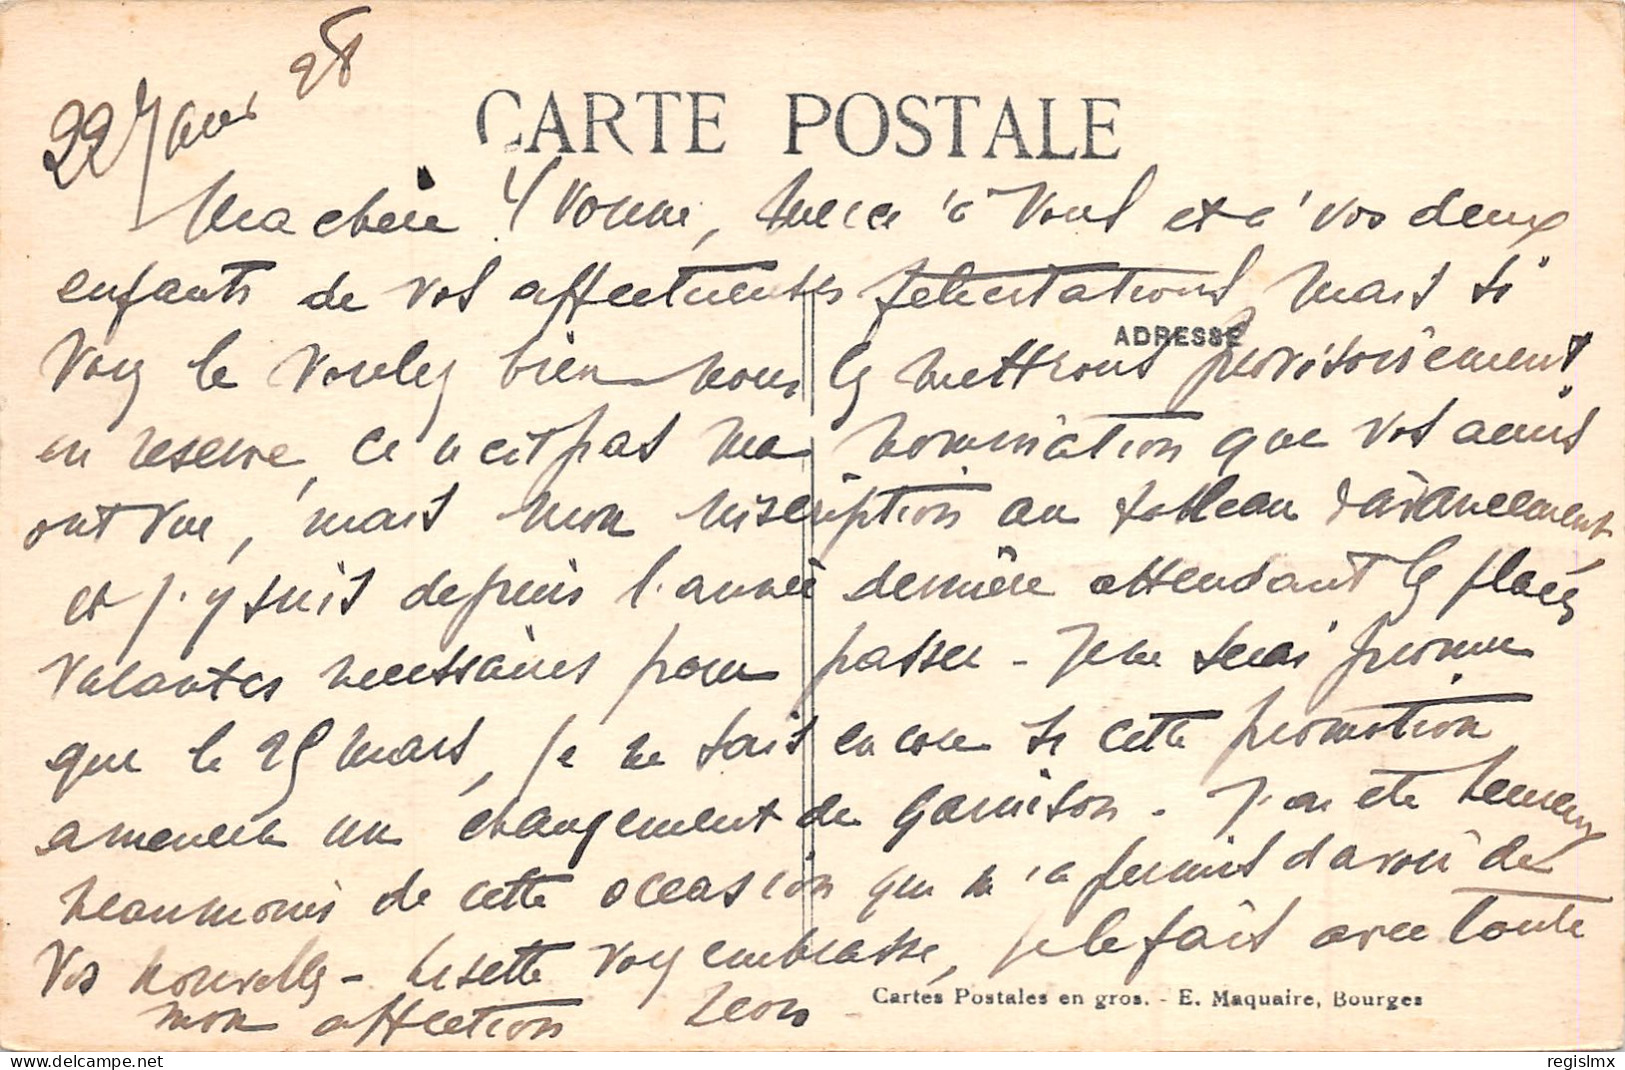 22 Janv 28
CARTE POSTALE
Ma chère Yvonne, merci à vous et à vos deux
enfants de vos affectueuses félicitations, mais si
vous le voulez bien nous les mettrons provisoirement
ADRESSE
en reserve, ce n'est pas ma nomination que vos amis
ont vue, mais mon inscription au tableau d'avancement
et j'y suis depuis l'année dernière attendant les places
vacantes necessaires pour passer - Je ne serai promu
que le 25 mars, je ne sais encore si cette promotion
amenera un changement de garnison. J'ai été heureux
neanmoins de cette occasion qui m'a permis d'avoir de
vos nouvelles - Lisette vous embrasse, je le fais avec toute
mon affection Leon
Cartes Postales en gros. - E. Maquaire, Bourges
delcampe.net
regislmx